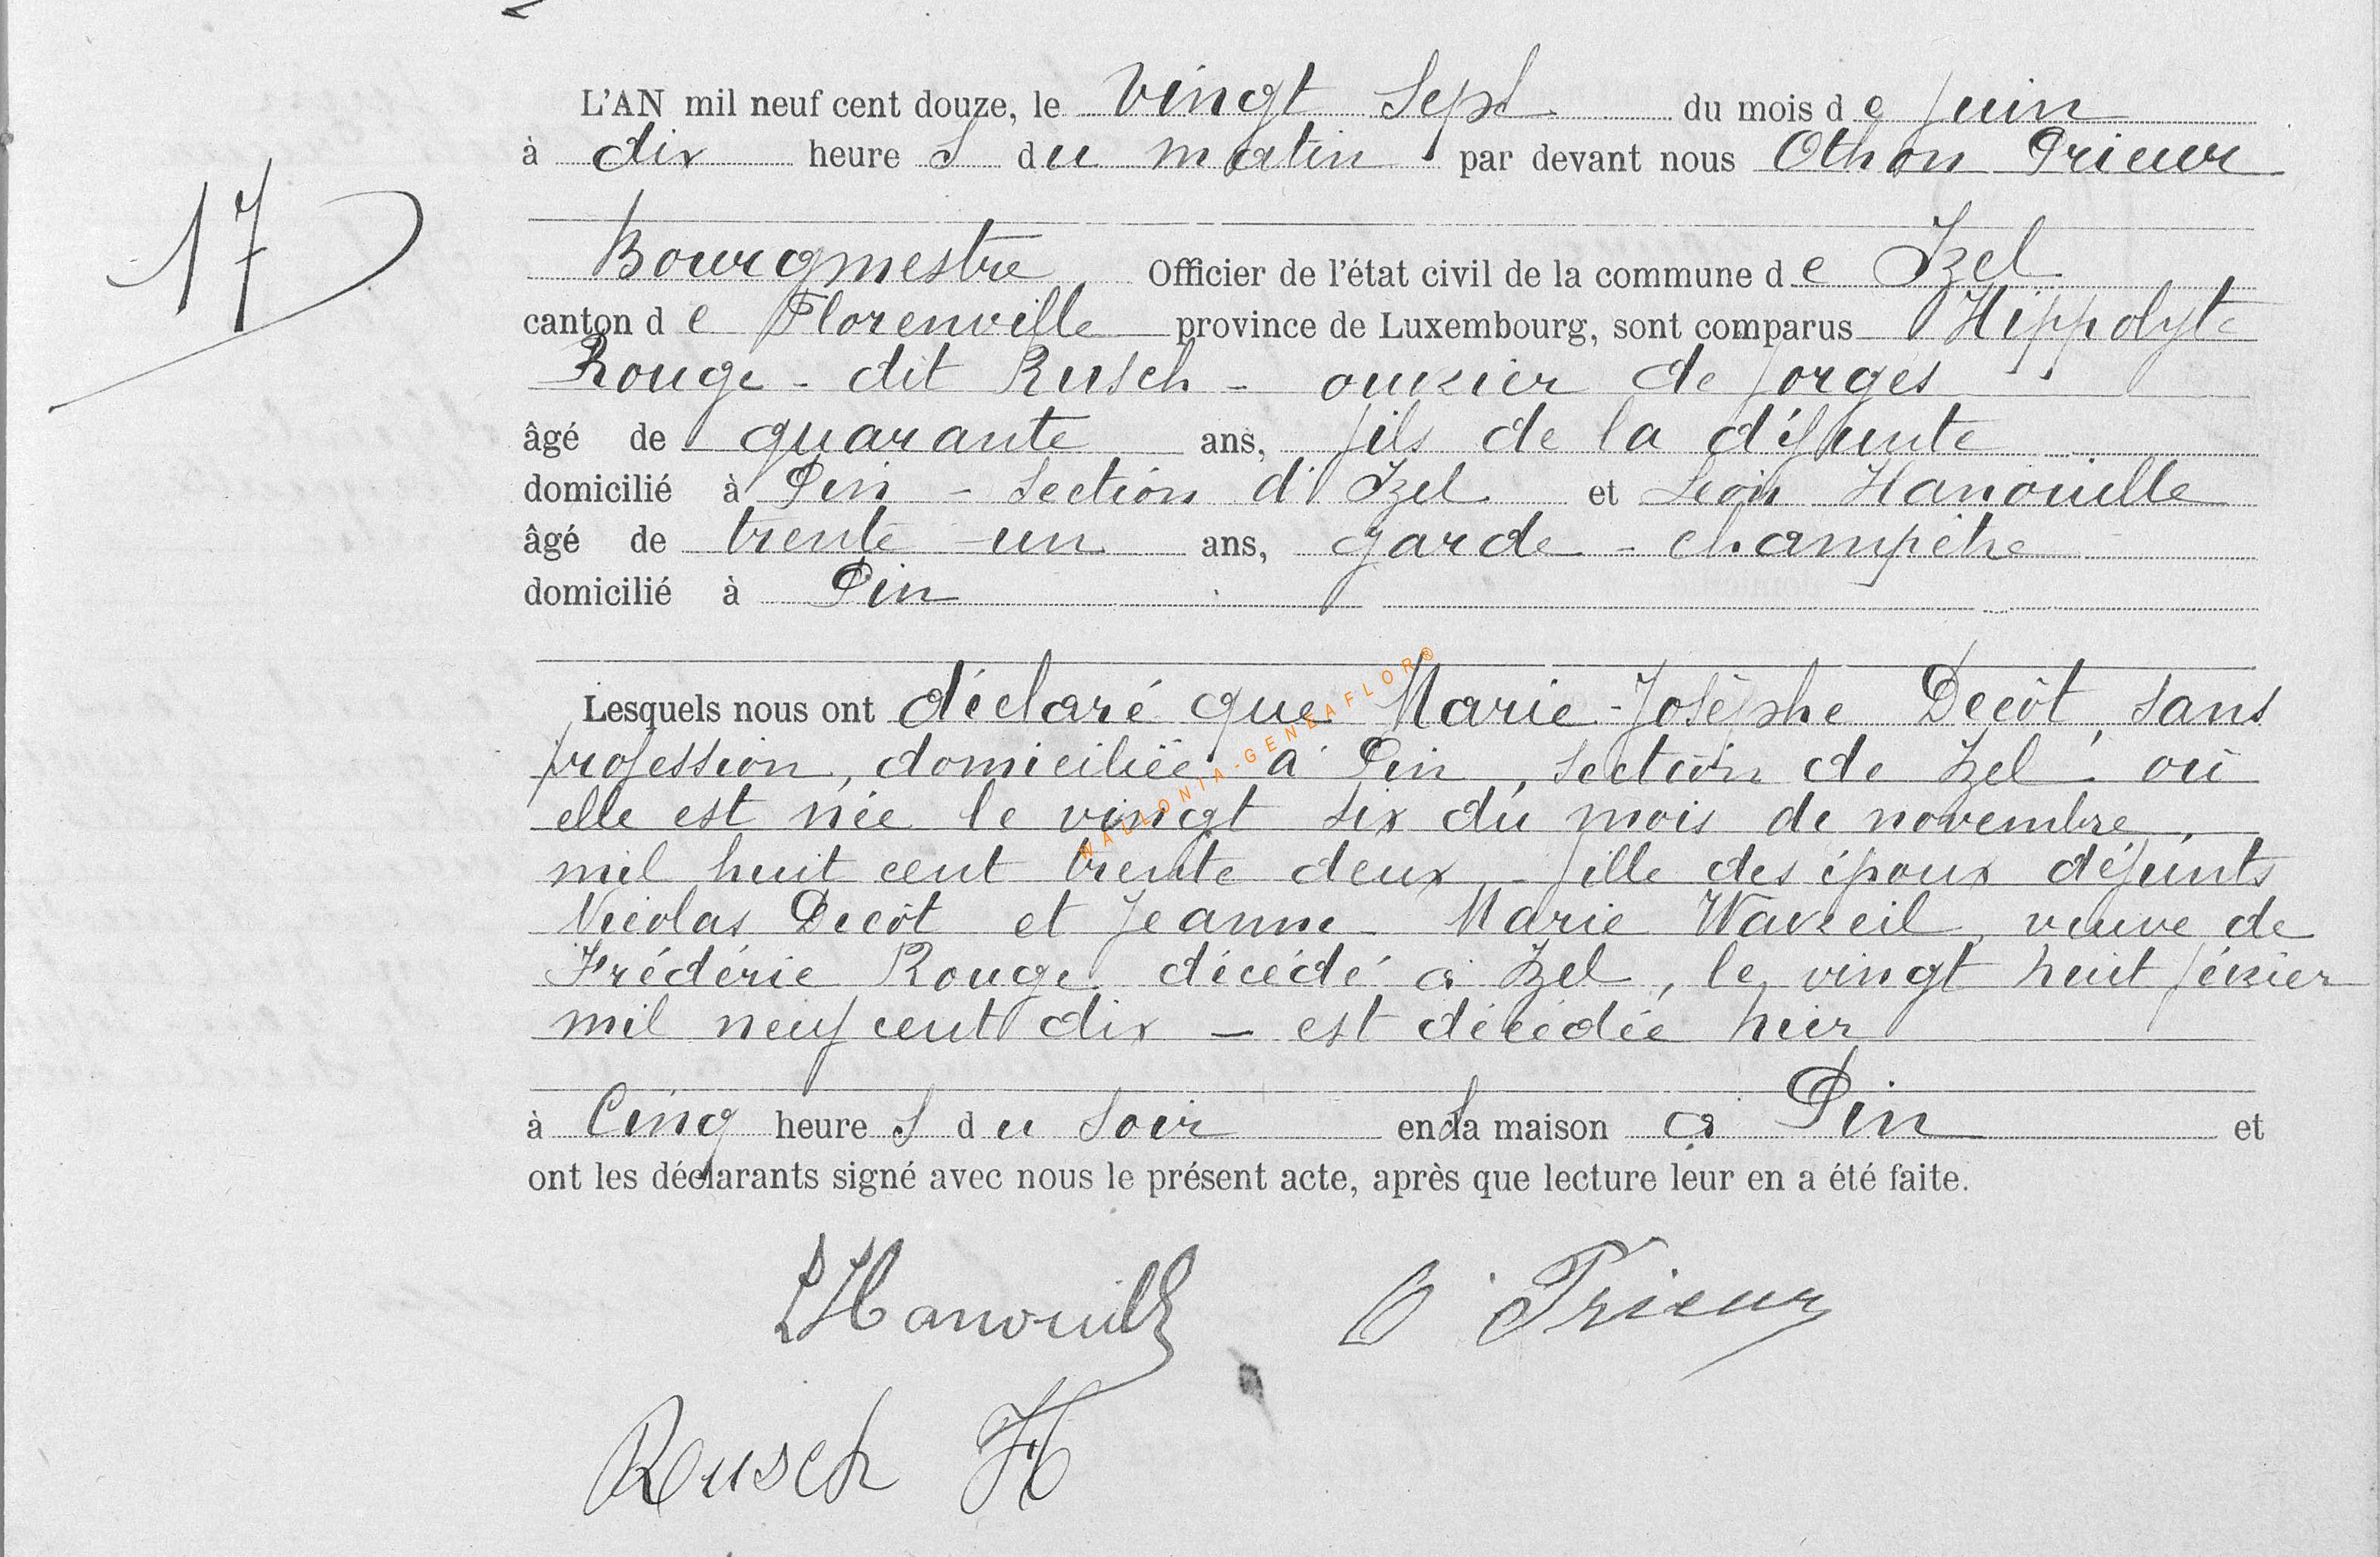 L'AN mil neuf cent douze, le vingt sept du mois de juin
à dix heures du matin par devant nous Othon Prieur
17
Bourgmestre Officier de l'état civil de la commune de Izel
canton de Florenville province de Luxembourg, sont comparus Hippolyte
Rouge - dit Rusch - ouvrier de forges
âgé de quarante ans, fils de la défunte
domicilié à Pin - section d'Izel et Léon Hanouille
âgé de trente-un ans, garde-champêtre
domicilié à Pin
Lesquels nous ont déclaré que Marie-Josèphe Decôt, sans
profession, domiciliée à Pin, section de Izel, où
elle est née le vingt six du mois de novembre
mil huit cent trente deux - fille des époux défunts
Nicolas Decôt et Jeanne Marie Waveil, veuve de
Frédéric Rouge décédé à Izel, le vingt huit février
mil neuf cent dix - est décédée hier
à Cinq heures du soir en sa maison à Pin et
ont les déclarants signé avec nous le présent acte, après que lecture leur en a été faite.
LHanouille O Prieur
Rusch H
WALLONIA-GENEAFLOR®